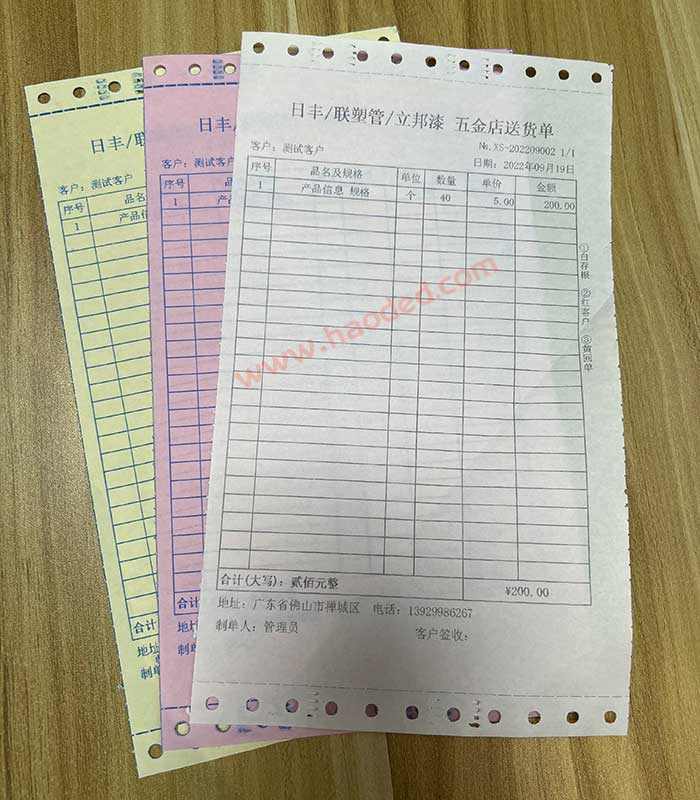 日丰/联塑管/立邦漆 五金店送货单
客户: 测试客户
№.XS-202209002 1/1
日期: 2022年09月19日
序号 品名及规格 单位 数量 单价 金额
1 产品信息 规格 个 40 5.00 200.00
①白存根 ②红客户 ③黄回单
合计(大写): 贰佰元整 ¥200.00
地址: 广东省佛山市禅城区 电话: 13929986267
制单人: 管理员 客户签收:
日丰/
客户: 测试客户
序号
1 产
合计
地
制
日丰/联
客户: 测试客户
序号 品名
1 产品信
合计
地址
制单
www.haoded.com